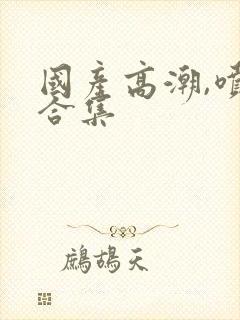 國產高潮,噴
合集
鷓鴣天